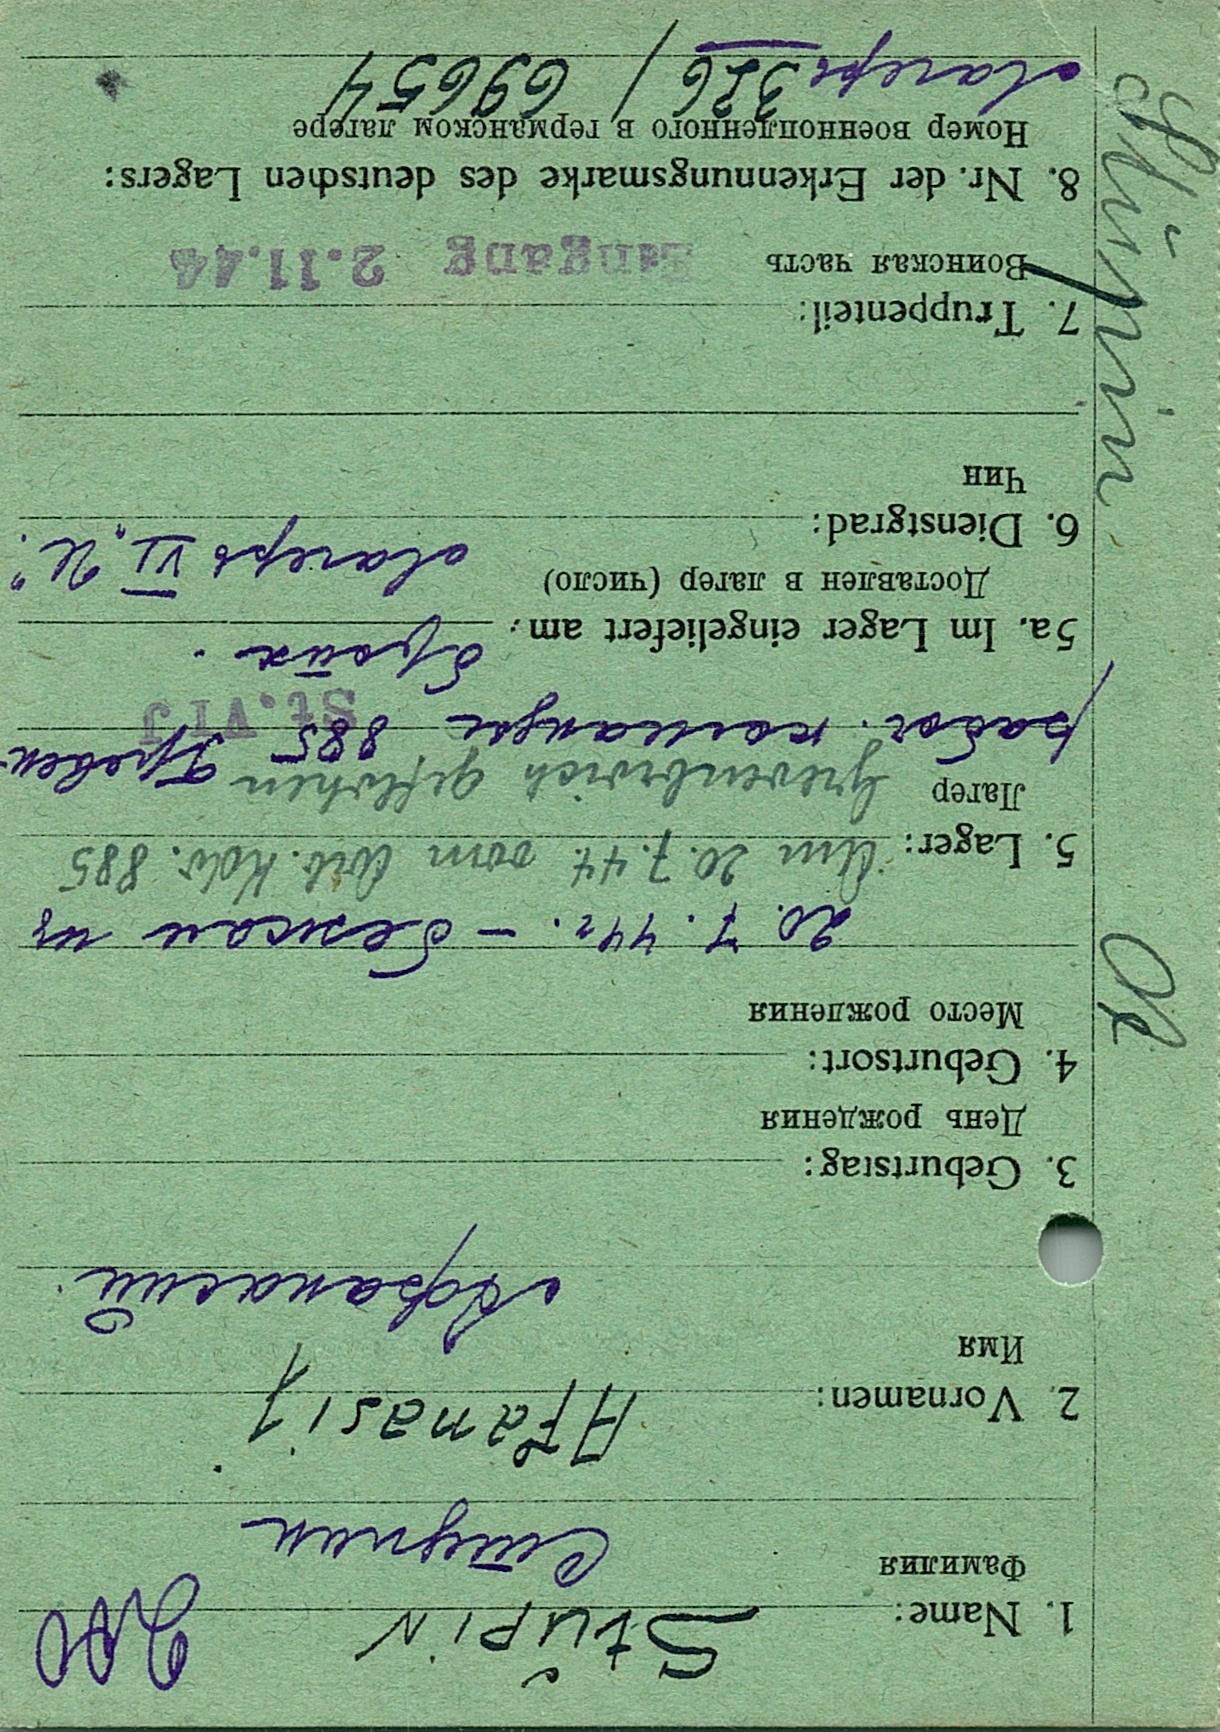 Stŭpin
1. Name: StŭpiN
Фамилия
Ступин
2. Vornamen: Afanasij
Имя
Афанасий.
3. Geburtstag:
День рождения
4. Geburtsort:
Место рождения
20. 7. 44 г. – бежал из
5. Lager: Am 20.7.44. vom Arb. Kdo. 885
Лагер Grevenbroich geflohen
рабоч. команды 885 Гревен-
St.VIJ
бройх.
5a. Im Lager eingeliefert am:
Доставлен в лагер (число)
лагерь VI „
6. Dienstgrad:
Чин
7. Truppenteil:
Воинская часть
Eingang 2.11.44
8. Nr. der Erkennungsmarke des deutschen Lagers:
Номер военнопленного в германском лагере
лагерь 326 / 69654